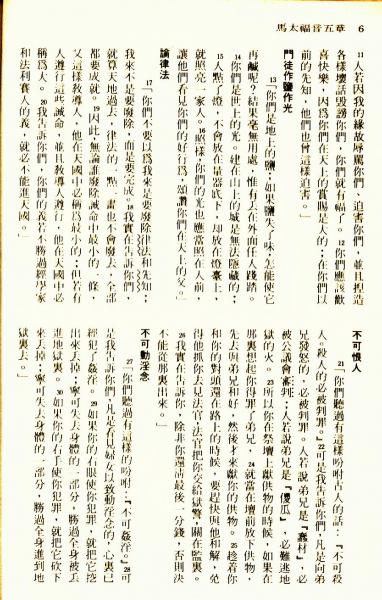 馬太福音五章　6
11人若因我的緣故辱罵你們，迫害你們，並且捏造
各樣壞話毀謗你們，你們就有福了。12你們應該歡
喜快樂，因爲你們在天上的賞賜是大的；在你們以
前的先知，他們也曾這樣迫害。」
門徒作鹽作光
13「你們是地上的鹽；如果鹽失了味，怎能使它
再鹹呢？結果毫無用處，惟有丟在外面任人踐踏。
14你們是世上的光。建在山上的城是無法隱藏的；
15人點了燈，不會放在量器底下，却放在燈臺上，
就照亮一家人。16照樣，你們的光也應當照在人前，
讓他們看見你們的好行爲，頌讚你們在天上的父。」
論律法
17「你們不要以爲我來是要廢除律法和先知；
我來不是要廢除，而是要完成。18我實在告訴你們，
就算天地過去，律法的一點一畫也不會廢去，全部
都要成就。19因此，無論誰廢除誡命中最小的一條，
又這樣教導人，他在天國中必稱爲最小的；但若有
人遵行這些誡命，並且教導人遵行，他在天國中必
稱爲大。20我告訴你們，你們的義若不勝過經學家
和法利賽人的義，就必不能進天國。」
不可恨人
21「你們聽過有這樣吩咐古人的話：『不可殺
人。殺人的必被判罪。』22可是我告訴你們，凡是向弟
兄發怒的，必被判罪。人若說弟兄是『蠢材』，必
被公議會審判；人若說弟兄是『傻瓜』，必難逃地
獄的火。23所以你在祭壇上獻供物的時候，如果在
那裏想起你得罪了弟兄，24就當在壇前放下供物，
先去與弟兄和好，然後才來獻你的供物。25趁着你
和你的對頭還在路上的時候，要趕快與他和解，免
得他抓你去見法官，法官把你交給獄警，關在監裏。
26我實在告訴你，除非你還清最後一分錢，否則決
不能從那裏出來。」
不可動淫念
27「你們聽過有這樣的吩咐：『不可姦淫。』28可
是我告訴你們，凡是看見婦女以致動淫念的，心裏已
經犯了姦淫。29如果你的右眼使你犯罪，就把它挖
出來丟掉；寧可失去身體的一部分，勝過全身被丟
進地獄裏。30如果你的右手使你犯罪，就把它砍下
來丟掉；寧可失去身體的一部分，勝過全身進到地
獄裏去。」